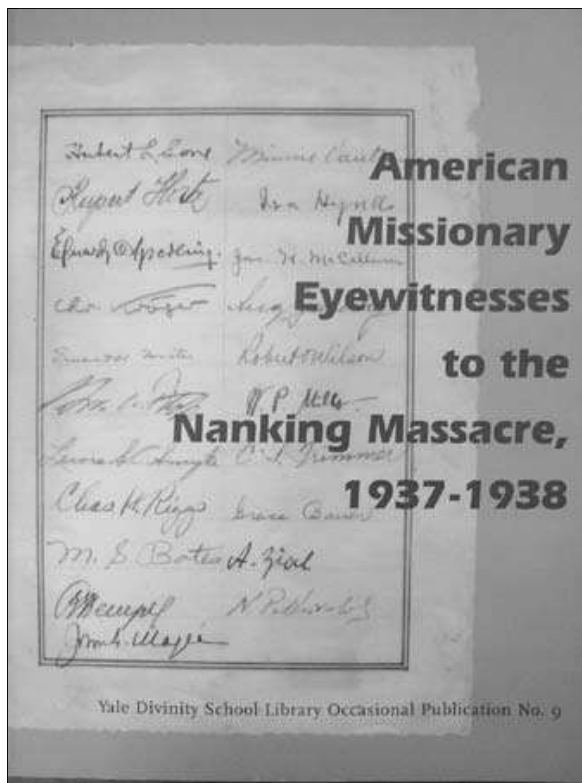 American
Missionary
Eyewitnesses
to the
Nanking Massacre,
1937-1938
Hubert L Sone
Minnie Vautr
Rupert Hatz
Iva Hynds
Eduard Sperling.
Jas. H. McCallum
Robert O Wilson
W P Mills
Lewis S C Smythe
C. S. Trimmer
Chas H. Riggs
Grace Bauer
M. S Bates
A. Zial
John G. Magee
Yale Divinity School Library Occasional Publication No. 9